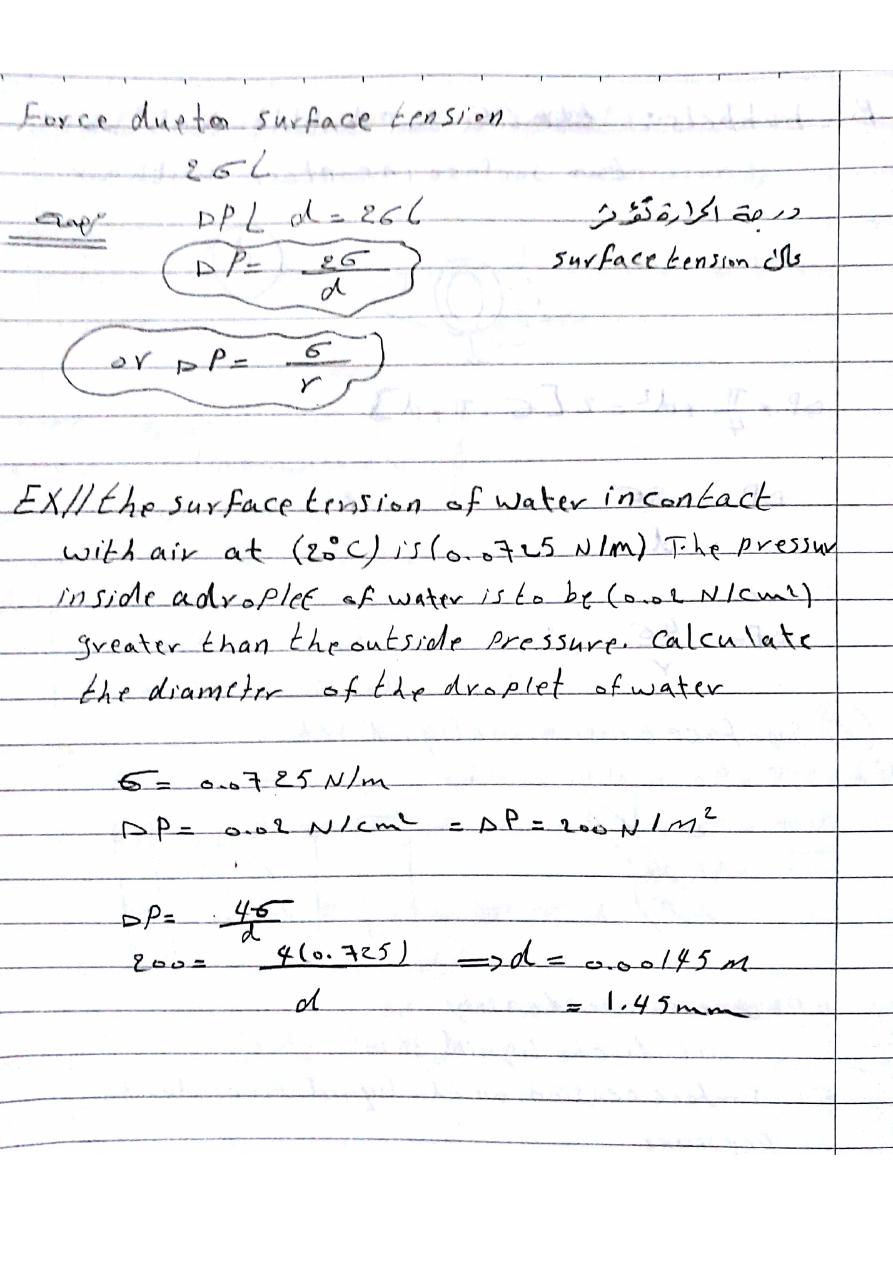 Force dueto surface tension
2σL
ΔPL d = 2σL
درجة الحرارة تؤثر
ΔP = 2σ/d
surface tension على
or ΔP = σ/r
EX// the surface tension of water in contact
with air at (20°C) is (0.0725 N/m) The pressur
inside a droplet of water is to be (0.02 N/cm²)
greater than the outside pressure. Calculate
the diameter of the droplet of water
σ = 0.0725 N/m
ΔP = 0.02 N/cm² = ΔP = 200 N/m²
ΔP = 4σ/d
200 = 4(0.725)/d ⟹ d = 0.00145 m
= 1.45 mm